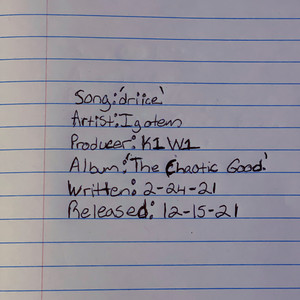 Song: 'driice'
Artist: Igotem
Producer: K1W1
Album: 'The Chaotic Good'
Written: 2-24-21
Released: 12-15-21